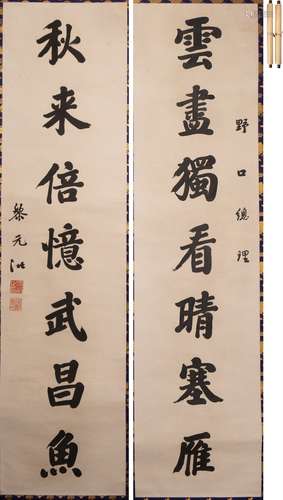 雲盡獨看晴塞雁
野口總理
秋来倍憶武昌魚
黎元洪